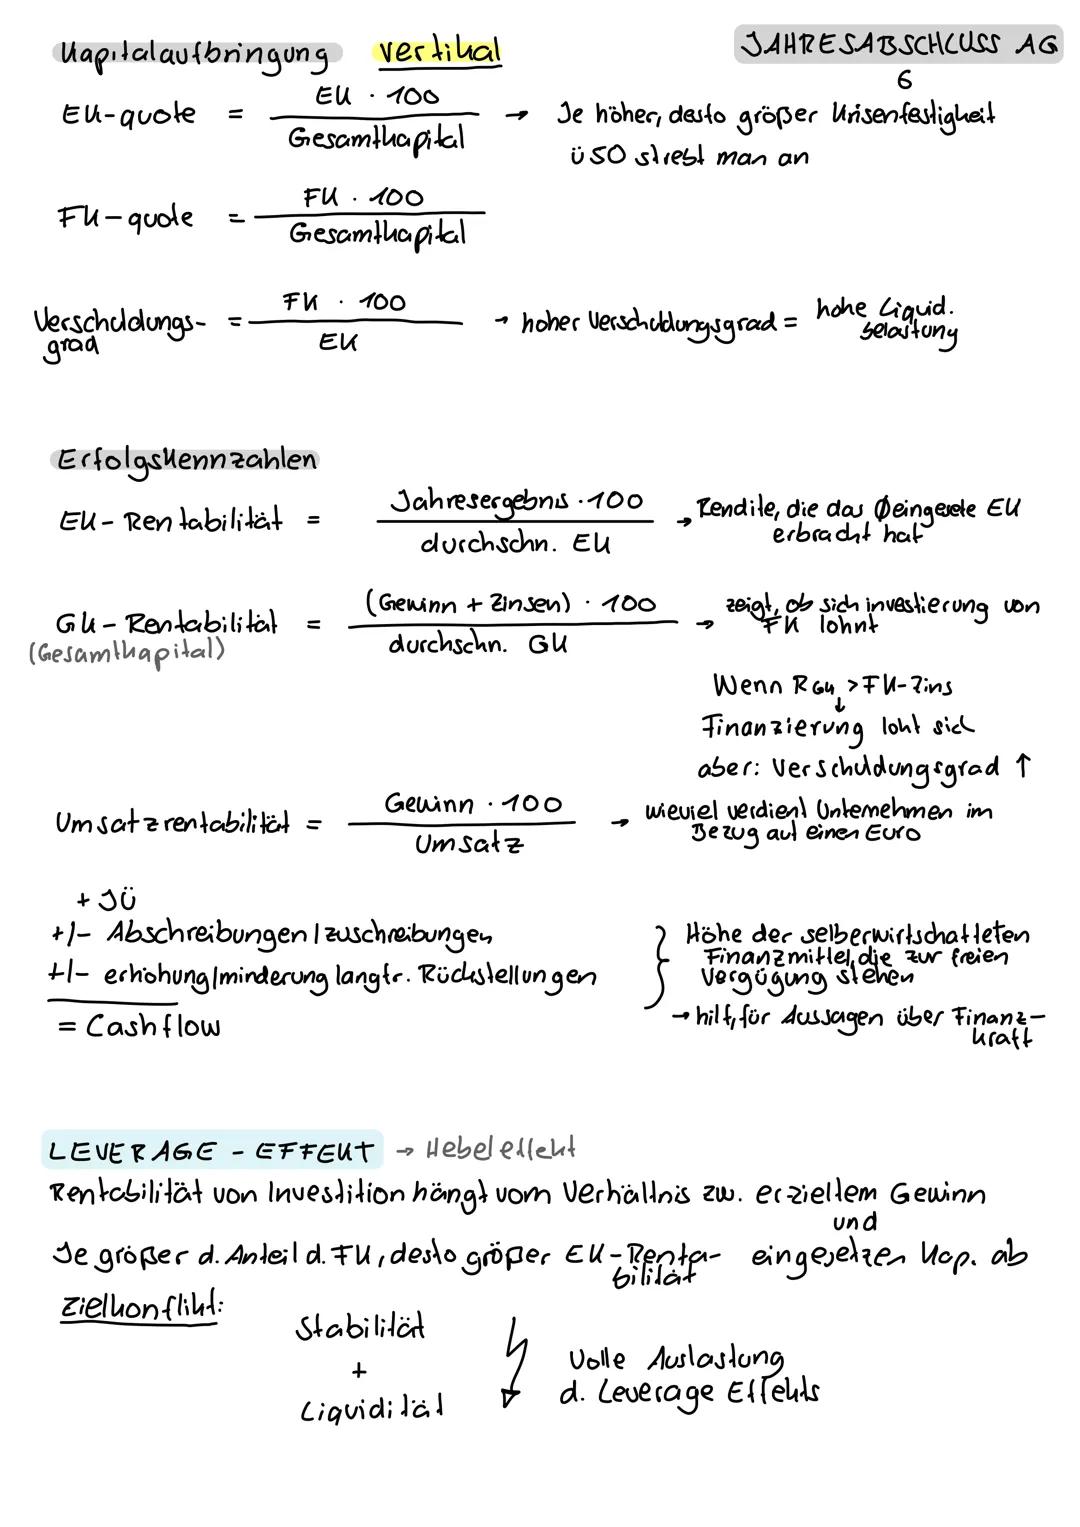 Kapitalaufbringung vertikal
JAHRESABSCHLUSS AG
6
EK-quote = EK · 100 / Gesamtkapital → Je höher, desto größer Krisenfestigkeit
ü 50 strebt man an
FK-quote = FK · 100 / Gesamtkapital
Verschuldungs-grad = FK · 100 / EK → hoher Verschuldungsgrad = hohe Liquid.
belastung
Erfolgskennzahlen
EK-Rentabilität = Jahresergebnis · 100 / durchschn. EK → Rendite, die das Ø eingesetzte EK
erbracht hat
GK-Rentabilität = (Gewinn + Zinsen) · 100 / durchschn. GK → zeigt, ob sich investierung von
FK lohnt
(Gesamtkapital)
Wenn RGK > FK-Zins
↓
Finanzierung loht sich
aber: Verschuldungsgrad ↑
Umsatzrentabilität = Gewinn · 100 / Umsatz → wieviel verdient Unternehmen im
Bezug auf einen Euro
+ JÜ
+/- Abschreibungen/zuschreibungen
+/- erhöhung/minderung langfr. Rückstellungen
= Cashflow
} Höhe der selberwirtschafteten
Finanzmittel, die zur freien
Vergügung stehen
→ hilft, für Aussagen über Finanz-
kraft
LEVERAGE - EFFEKT → Hebeleffekt
Rentabilität von Investition hängt vom Verhältnis zw. erzieltem Gewinn
und
eingesetzen Kap. ab
Je größer d. Anteil d. FK, desto größer EK-Renta-
bilität
Zielkonflikt:
Stabilität
+
Liquidität
Volle Auslastung
d. Leverage Effekts